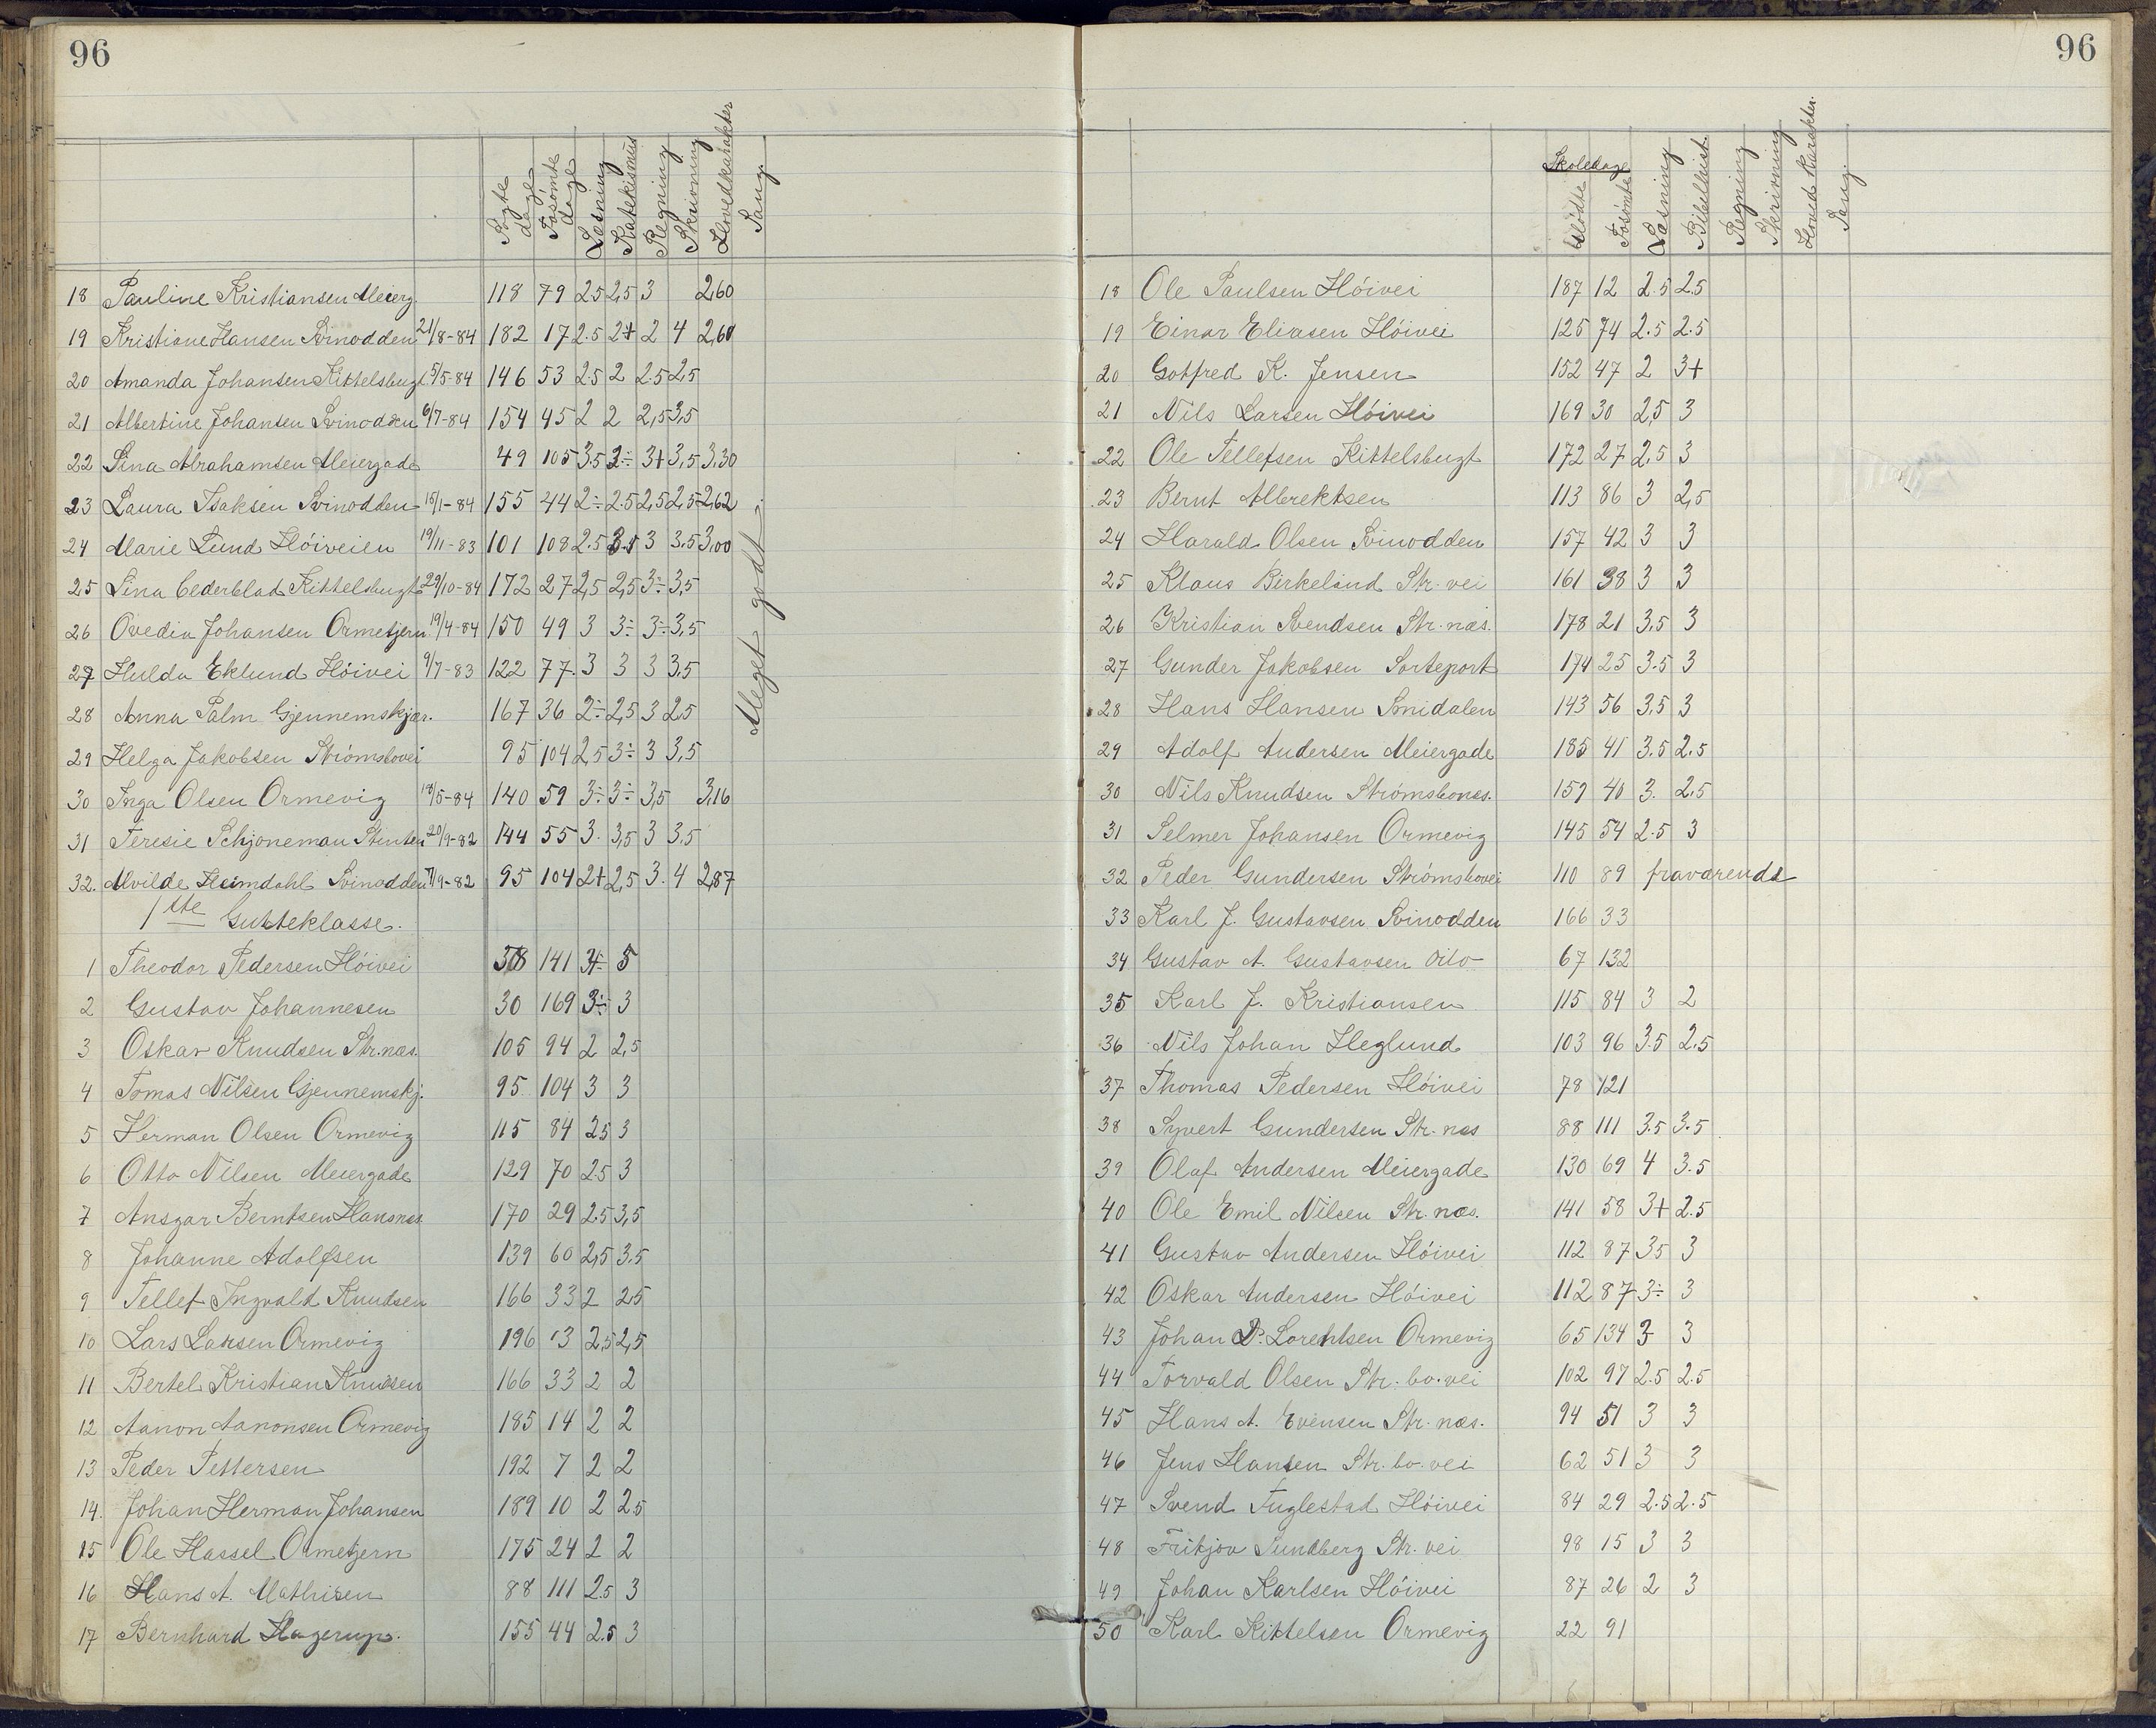 96
Søgte dage Forsømte dage Læsning Katekismus Regning Skrivning Hovedkarakter Sang.
18 Pauline Kristiansen Meierg. 118 79 2.5 2,5 3 2,60
19 Kristiane Hansen Svinodden 21/8-84 182 17 2.5 2+ 2 4 2,60
20 Amanda Johansen Kittelsbugt 5/5-84 146 53 2.5 2 2.5 2,5
21 Albertine Johansen Svinodden 6/7-84 154 45 2 2 2,5 3,5
22 Lina Abrahamsen Meiergade 49 105 3.5 3÷ 3+ 3,5 3,30
23 Laura Isaksen Svinodden 15/1-84 155 44 2÷ 2.5 2,5 2,5 2,62
24 Marie Lund Hóiveien 19/11-83 101 108 2.5 3.5 3 3.5 3,00
25 Lina Cederblad Kittelsbugt 29/10-84 172 27 2,5 2,5 3÷ 3,5
26 Ovedia Johansen Ormetjern 19/4-84 150 49 3 3÷ 3÷ 3,5
27 Hulda Eklund Hóivei 9/7-83 122 77 3 3 3 3,5
28 Anna Palm Gjennemskjær. 167 36 2÷ 2,5 3 2,5
29 Helga Jakobsen Strómsbovei 95 104 2,5 3÷ 3 3,5
30 Inga Olsen Ormevig 18/5-84 140 59 3÷ 3÷ 3,5 3,16
31 Teresie Schjoneman Stinten 20/9-82 144 55 3. 3,5 3 3,5
32. Alvilde Heimdahl Svinodden 7/9-82 95 104 2+ 2,5 3. 4 2,87
Meget godt
1ste Gutteklasse.
1 Theodor Pedersen Hóivei 38 141 3÷ 5
2 Gustav Johannesen 30 169 3÷ 3
3 Oskar Knudsen Str.næs. 105 94 2 2,5
4 Tomas Nilsen Gjennemskj. 95 104 3 3
5 Herman Olsen Ormevig 115 84 2.5 3
6 Otto Nilsen Meiergade 129 70 2.5 3
7 Ansgar Berntsen Hansnes. 170 29 2.5 3,5
8 Johanne Adolfsen 139 60 2,5 3,5
9 Tellef Ingvald Knudsen 166 33 2 2,5
10 Lars Larsen Ormevig 196 13 2,5 2,5
11 Bertel Kristian Knudsen 166 33 2 2
12 Aanon Aanonsen Ormevig 185 14 2 2
13 Peder Pettersen 192 7 2 2
14. Johan Herman Johansen 189 10 2 2.5
15 Ole Hassel Ormetjern 175 24 2 2
16 Hans A. Mathisen 88 111 2.5 3
17 Bernhard Hagerup. 155 44 2.5 3
96
Skoledage
Mødte Forsømte Læsning Bibelhist. Regning Skrivning Hoved karakter. Sang.
18 Ole Paulsen Hóivei 187 12 2.5 2.5
19 Einar Eliasen Hóivei 125 74 2.5 2.5
20 Gotfred K. Jensen 152 47 2 3+
21 Nils Larsen Hóivei 169 30 2,5 3
22 Ole Tellefsen Kittelsbugt 172 27 2,5 3
23 Bernt Albrektsen 113 86 3 2,5
24 Harald Olsen Svinodden 157 42 3 3
25 Klaus Birkeland Str. vei 161 38 3 3
26 Kristian Svendsen Str. næs. 178 21 3,5 3
27 Gunder Jakobsen Sorteport 174 25 3.5 3
28 Hans Hansen Smidalen 143 56 3,5 3
29 Adolf Andersen Meiergade 185 41 3.5 2.5
30 Nils Knudsen Strómsbones. 159 40 3. 2,5
31 Selmer Johansen Ormevig 145 54 2.5 3
32 Peder Gundersen Strómsbovei 110 89 fraværende
33 Karl J. Gustavsen Svinodden 166 33
34 Gustav A. Gustavsen dito 67 132
35 Karl J. Kristiansen 115 84 3 2
36 Nils Johan Heglund 103 96 3.5 2.5
37 Thomas Pedersen Hóivei 78 121
38 Syvert Gundersen Str. næs 88 111 3.5 3.5
39 Olaf Andersen Meiergade 130 69 4 3.5
40 Ole Emil Nilsen Str. næs. 141 58 3+ 2.5
41 Gustav Andersen Hóivei 112 87 3.5 3
42 Oskar Andersen Hóivei 112 87 3÷ 3
43 Johan P. Lorentsen Ormevig 65 134 3 3
44 Torvald Olsen Str. bo. vei 102 97 2.5 2.5
45 Hans A. Evensen Str. næs. 94 51 3 3
46 Jens Hansen Str. bo. vei 62 51 3 3
47 Svend Fuglestad Hóivei 84 29 2.5 2.5
48 Fritjov Sundberg Str. vei 98 15 3 3
49 Johan Karlsen Hóivei 87 26 2 3
50 Karl Kittelsen Ormevig 22 91